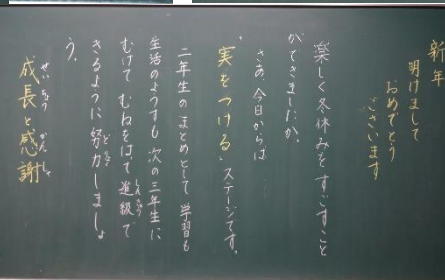 新年
明けまして
おめでとう
ございます
楽しく冬休みをすごすこと
ができましたか。
さあ、今日からは
"実をつける"ステージです。
二年生のまとめとして学習も
生活のようすも次の三年生に
むけてむねをはって進級で
きるように努力しましょ
う。
成長と感謝